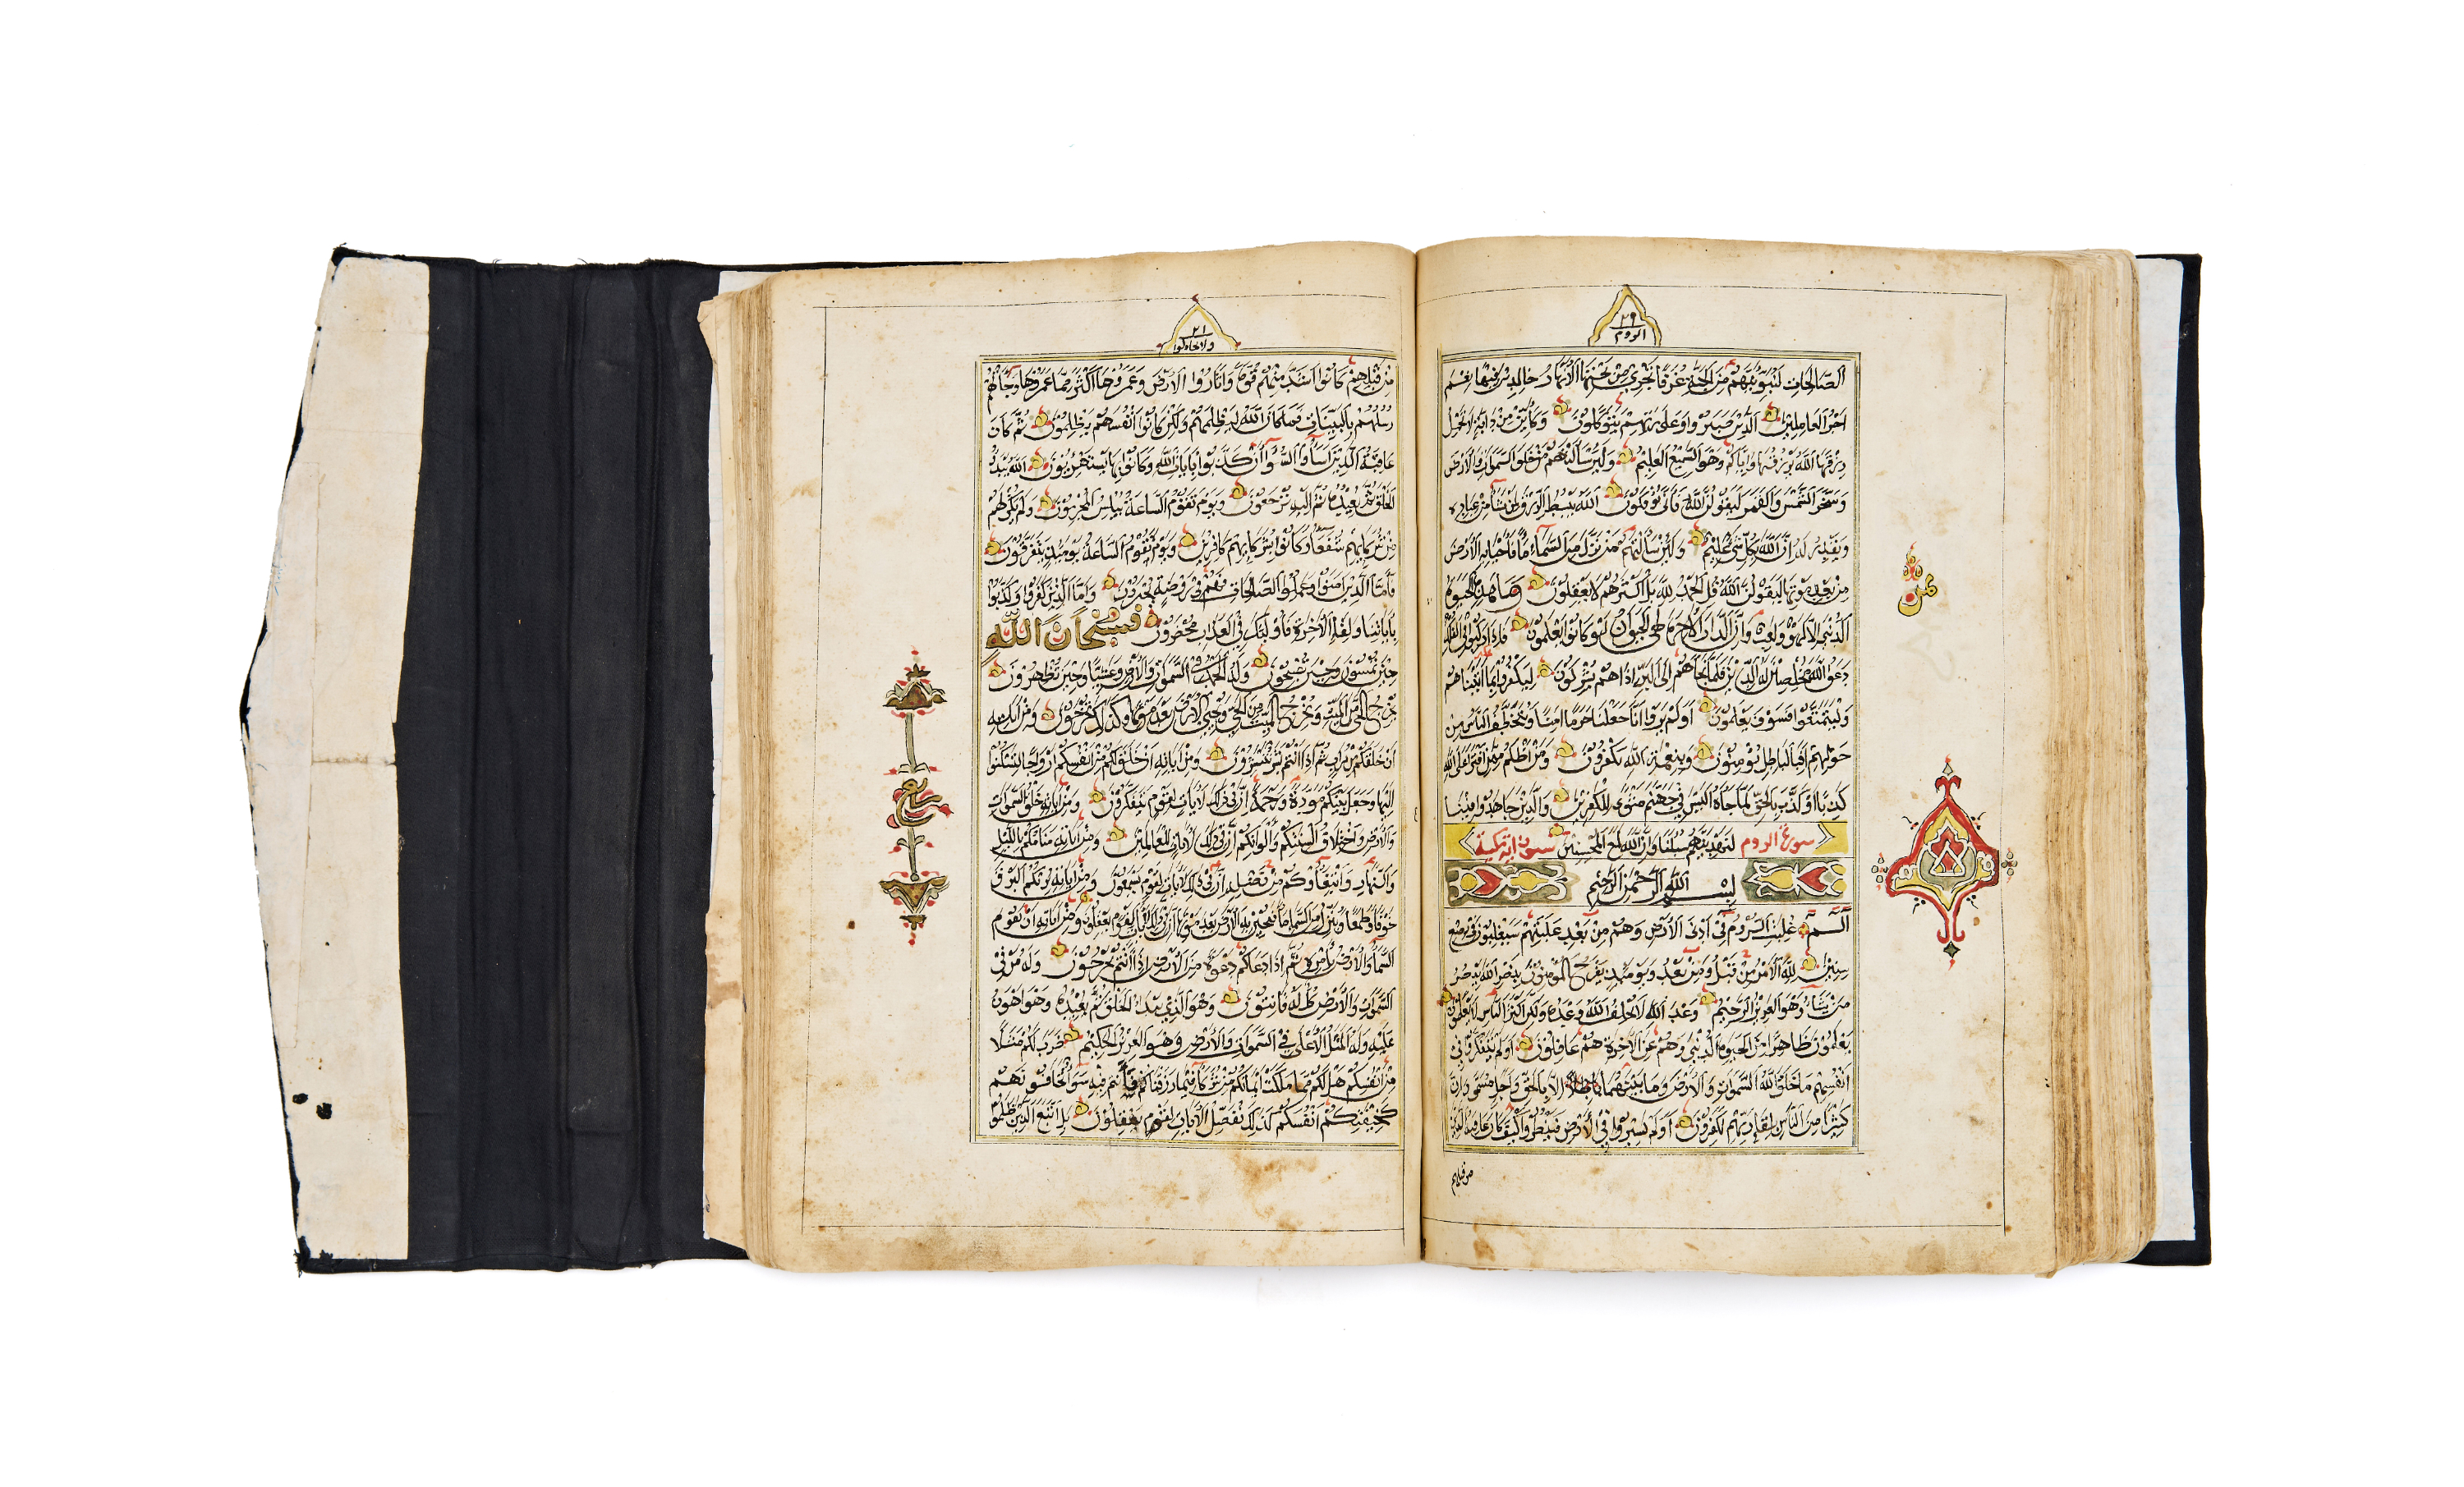 ٢٩
الروم
الصالحات لنبوئنهم من الجنة غرفا تجري من تحتها الأنهار خالدين فيها نعم
أجر العاملين الذين صبروا وعلى ربهم يتوكلون وكأين من دابة لا تحمل
رزقها الله يرزقها وإياكم وهو السميع العليم ولئن سألتهم من خلق السموات والأرض
وسخر الشمس والقمر ليقولن الله فأنى يؤفكون الله يبسط الرزق لمن يشاء من عباده
ويقدر له إن الله بكل شيء عليم ولئن سألتهم من نزل من السماء ماء فأحيا به الأرض
من بعد موتها ليقولن الله قل الحمد لله بل أكثرهم لا يعقلون وما هذه الحيوة
الدنيا إلا لهو ولعب وإن الدار الآخرة لهي الحيوان لو كانوا يعلمون فإذا ركبوا في الفلك
دعوا الله مخلصين له الدين فلما نجاهم إلى البر إذا هم يشركون ليكفروا بما آتيناهم
وليتمتعوا فسوف يعلمون أولم يروا أنا جعلنا حرما آمنا ويتخطف الناس من
حولهم أفبالباطل يؤمنون وبنعمة الله يكفرون ومن أظلم ممن افترى على الله
كذبا أو كذب بالحق لما جاءه أليس في جهنم مثوى للكفرين والذين جاهدوا فينا
سورة الروم لنهدينهم سبلنا وإن الله لمع المحسنين ستون آية مكية
بسم الله الرحمن الرحيم
الم غلبت الروم في أدنى الأرض وهم من بعد غلبهم سيغلبون في بضع
سنين لله الأمر من قبل ومن بعد ويومئذ يفرح المؤمنون بنصر الله ينصر
من يشاء وهو العزيز الرحيم وعد الله لا يخلف الله وعده ولكن أكثر الناس لا يعلمون
يعلمون ظاهرا من الحيوة الدنيا وهم عن الآخرة هم غافلون أولم يتفكروا في
أنفسهم ما خلق الله السموات والأرض وما بينهما إلا بالحق وأجل مسمى وإن
كثيرا من الناس بلقاء ربهم لكفرون أولم يسيروا في الأرض فينظروا كيف كان عاقبة الذين
من قبلهم
٢١
ولا تجادلوا
من قبلهم كانوا أشد منهم قوة وأثاروا الأرض وعمروها أكثر مما عمروها وجاءتهم
رسلهم بالبينات فما كان الله ليظلمهم ولكن كانوا أنفسهم يظلمون ثم كان
عاقبة الذين أساؤا السوأى أن كذبوا بآيات الله وكانوا بها يستهزؤن الله يبدؤ
الخلق ثم يعيده ثم إليه ترجعون ويوم تقوم الساعة يبلس المجرمون ولم يكن لهم
من شركائهم شفعاء وكانوا بشركائهم كافرين ويوم تقوم الساعة يومئذ يتفرقون
فأما الذين آمنوا وعملوا الصالحات فهم في روضة يحبرون وأما الذين كفروا وكذبوا
بآياتنا ولقاء الآخرة فأولئك في العذاب محضرون فسبحان الله
حين تمسون وحين تصبحون وله الحمد في السموات والأرض وعشيا وحين تظهرون
يخرج الحي من الميت ويخرج الميت من الحي ويحيي الأرض بعد موتها وكذلك تخرجون ومن آياته
أن خلقكم من تراب ثم إذا أنتم بشر تنتشرون ومن آياته أن خلق لكم من أنفسكم أزواجا لتسكنوا
إليها وجعل بينكم مودة ورحمة إن في ذلك لآيات لقوم يتفكرون ومن آياته خلق السموات
والأرض واختلاف ألسنتكم وألوانكم إن في ذلك لآيات للعالمين ومن آياته منامكم بالليل
والنهار وابتغاؤكم من فضله إن في ذلك لآيات لقوم يسمعون ومن آياته يريكم البرق
خوفا وطمعا وينزل من السماء ماء فيحيي به الأرض بعد موتها إن في ذلك لآيات لقوم يعقلون ومن آياته أن تقوم
السماء والأرض بأمره ثم إذا دعاكم دعوة من الأرض إذا أنتم تخرجون وله من في
السموات والأرض كل له قانتون وهو الذي يبدؤا الخلق ثم يعيده وهو أهون
عليه وله المثل الأعلى في السموات والأرض وهو العزيز الحكيم ضرب لكم مثلا
من أنفسكم هل لكم مما ملكت أيمانكم من شركاء فيما رزقناكم فأنتم فيه سواء تخافونهم
كخيفتكم أنفسكم كذلك نفصل الآيات لقوم يعقلون بل اتبع الذين ظلموا